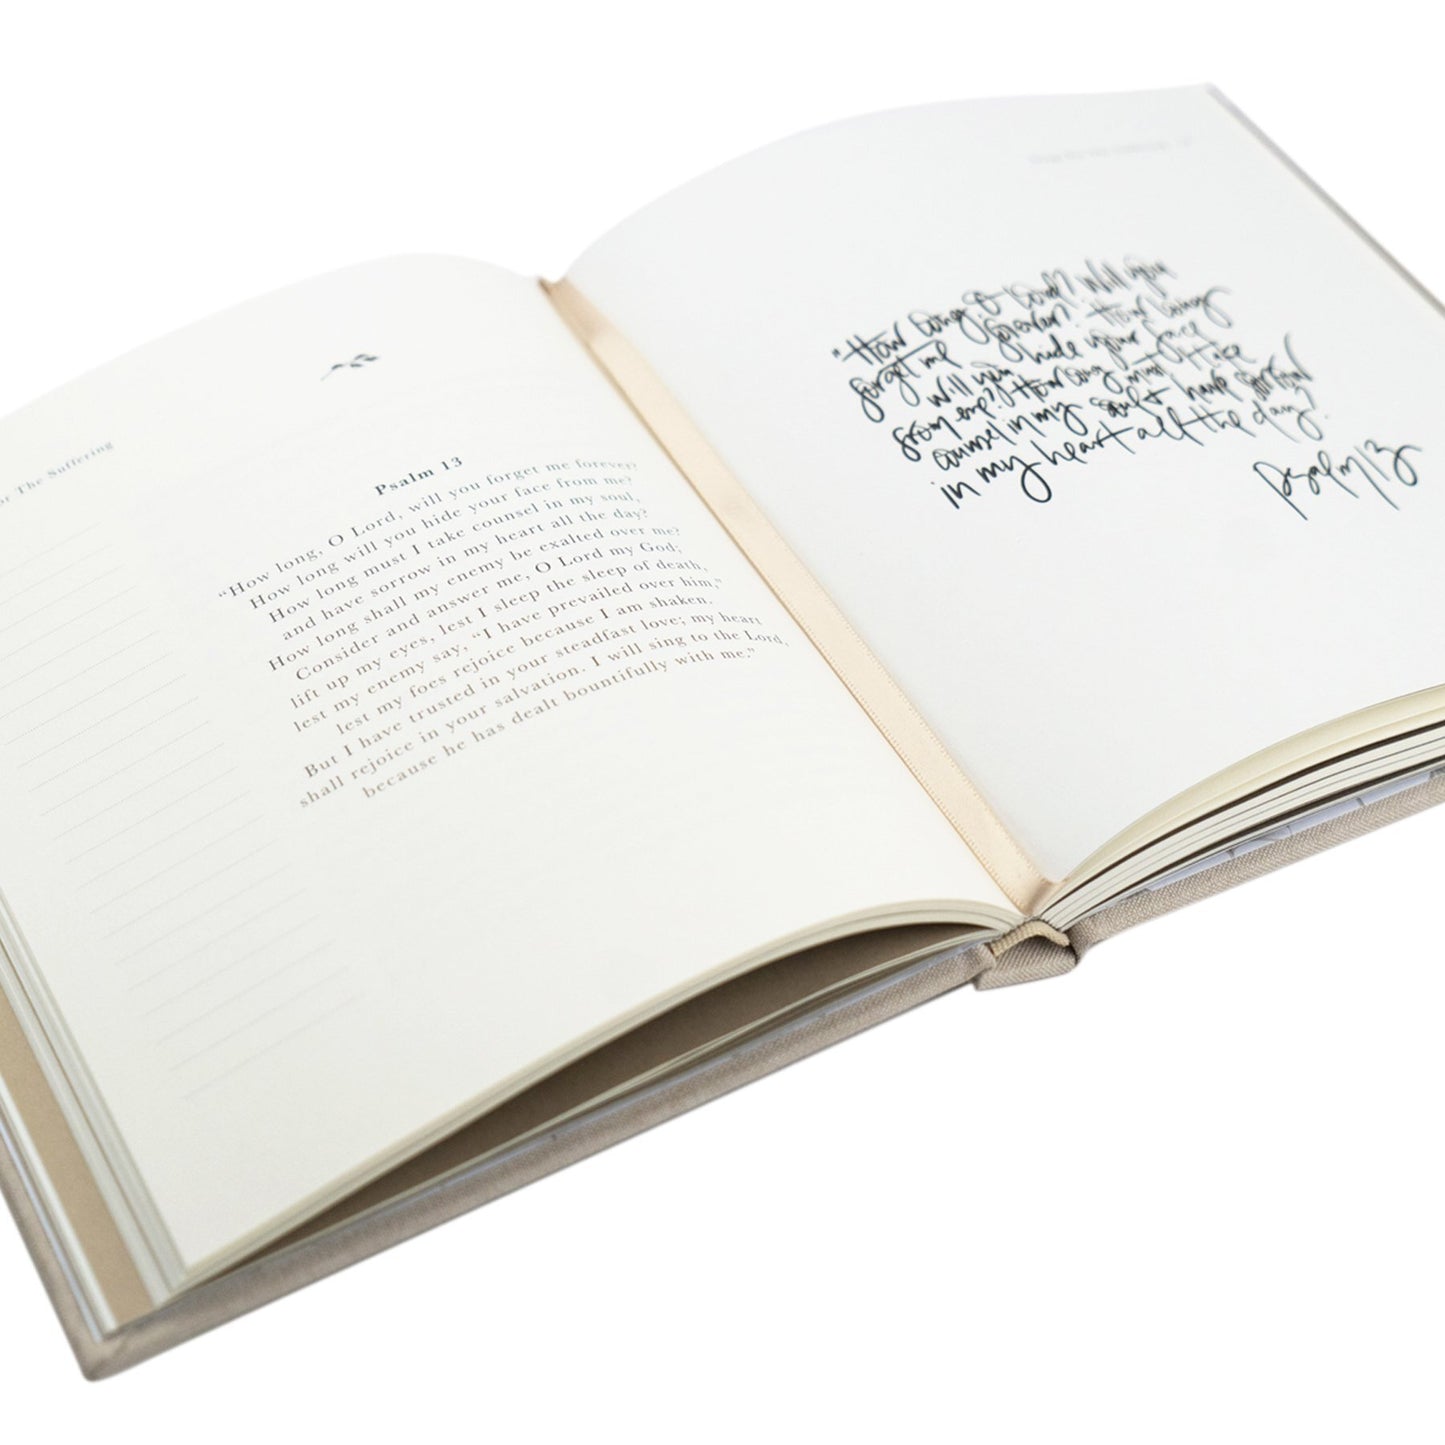 The Suffering
Psalm 13
“How long, O Lord, will you forget me forever?
How long will you hide your face from me?
How long must I take counsel in my soul,
and have sorrow in my heart all the day?
How long shall my enemy be exalted over me?
Consider and answer me, O Lord my God;
lift up my eyes, lest I sleep the sleep of death,
lest my enemy say, “I have prevailed over him,”
lest my foes rejoice because I am shaken.
But I have trusted in your steadfast love; my heart
shall rejoice in your salvation. I will sing to the Lord,
because he has dealt bountifully with me.”
"How long, O Lord? Will you
forget me forever? How long
will you hide your face
from me? How long must I take
counsel in my soul & have sorrow
in my heart all the day?
Psalm 13